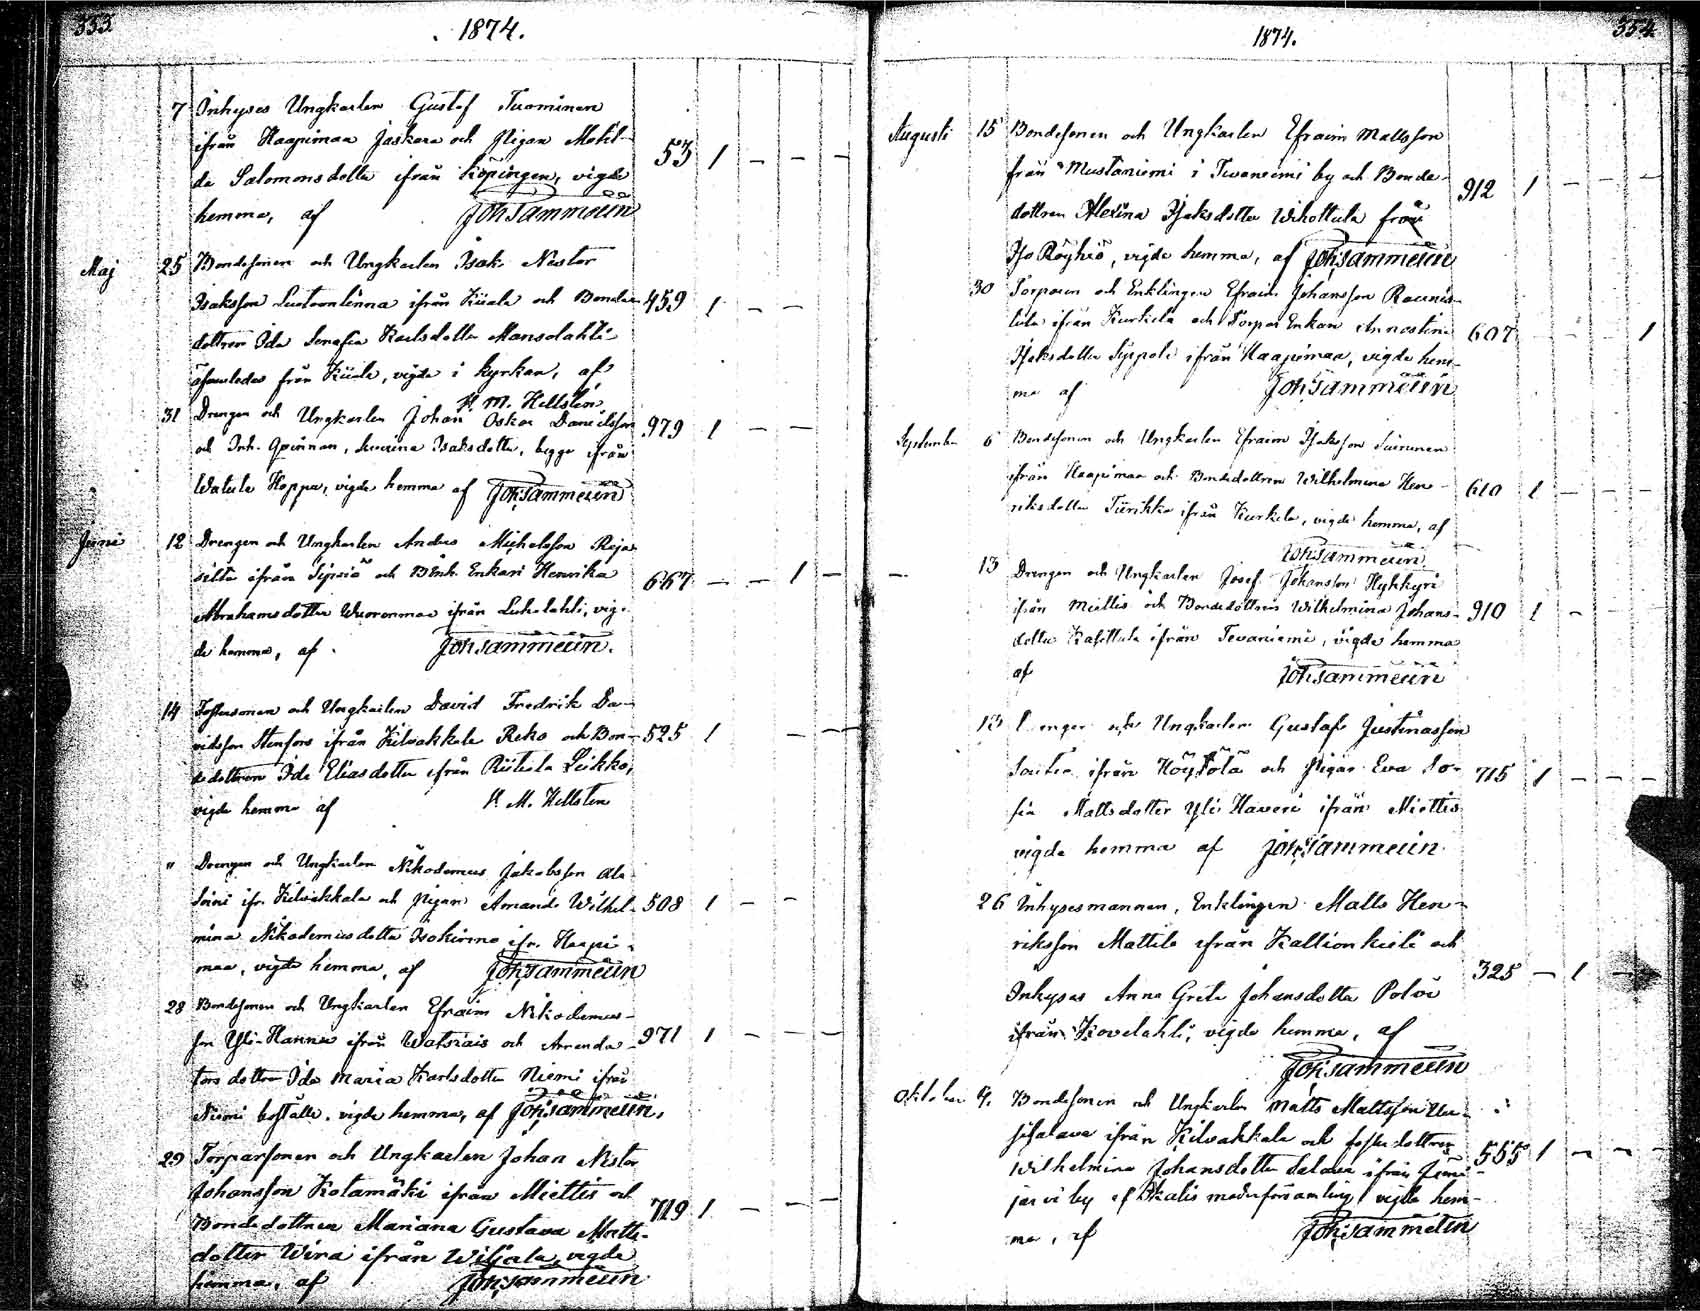 353.
1874.
7 Inhyses Ungkarlen Gustaf Tuominen
ifrån Haapimaa Jaskara och Pigan Matil-
da Salomonsdotter ifrån Köpingen, vigde 53 1 - - -
hemma, af Joh Sammelin
Maj 25 Bondesonen och Ungkarlen Isak Nestor
Isaksson ifrån Kiiala och Bonde- 459 1 - -
dottren Ida Serafia Karlsdotter Mansolahti
från Kiiala, vigde i kyrkan, af
K. M. Hellsten
31 Drengen och Ungkarlen Johan Oskar Danielsson 979 1 - -
och Inh. Qvinnan, Isaksdotter, begge ifrån
Watula Hoppu, vigde hemma af Joh Sammelin
Juni 12 Drengen och Ungkarlen Anders Michelsson Reja-
silta ifrån och Enkan Henrika 667 - - 1 -
Abrahamsdotter Wuorenmaa ifrån Luhalahti, vig-
de hemma, af Joh Sammelin.
14 och Ungkarlen David Fredrik Da-
vidsson Stenfors ifrån Kilvakkala Reko och Bon- 525 1 - - -
dedottren Ida Eliasdotter ifrån Riitiala Leikko,
vigde hemma af K. M. Hellsten
" Drengen och Ungkarlen Nikodemus Jakobsson Ala
ifr. Kilvakkala och Pigan Amanda Wilhel- 508 1 - -
mina Nikodemusdotter Isokivino ifr. Haapi-
maa, vigde hemma, af Joh Sammelin
28 Bondesonen och Ungkarlen Efraim Nikodemus-
son Yli-Hannu ifrån Watsiais och Arrenda- 971 1 - - -
tors dottren Ida Maria Karlsdotter Niemi ifrån
Niemi boställe, vigde hemma, af Joh Sammelin.
29 Torparsonen och Ungkarlen Johan Nestor
Johansson Kotamäki ifrån Miettis och 719 1 - - -
Bondedottren Mariana Gustava Matts-
dotter Wira ifrån Wiljala, vigde
hemma, af Joh Sammelin
354.
1874.
Augusti 15 Bondesonen och Ungkarlen Efraim Mattsson
från Mustaniemi i Tevaniemi by och Bonde- 912 1 - - -
dottren Alexina Isaksdotter Wihottula från
Iso Röyhiö, vigde hemma, af Joh Sammelin
30 Torparen och Enklingen Efraim Johansson Raunis-
tula ifrån Kurkela och Torpar Enkan Annastina 607 - - 1
Isaksdotter Seppälä ifrån Haapimaa, vigde hem-
ma af Joh Sammelin
September 6 Bondesonen och Ungkarlen Efraim Isaksson Suirunen
ifrån Haapimaa och Bondedottren Wilhelmina Hen- 610 1 - - -
riksdotter Tiirikka ifrån Kurkela, vigde hemma, af
Joh Sammelin
13 Drengen och Ungkarlen Josef Johansson Hykkyri
ifrån Miettis och Bondedottren Wilhelmina Johans- 910 1 -
dotter Kasettula ifrån Tevaniemi, vigde hemma
af Joh Sammelin
13 Drengen och Ungkarlen Gustaf Justinasson
ifrån Höytölä och Pigan Eva So- 715 1 - - -
fia Mattsdotter Yli Haveri ifrån Miettis
vigde hemma af Joh Sammelin
26 Inhysesmannen, Enklingen Matts Hen-
riksson Mattila ifrån Kallionkieli och 325 - 1 -
Inhyses Anna Greta Johansdotter Polvi
ifrån Kovelahti, vigde hemma, af
Joh Sammelin
Oktober 4. Bondesonen och Ungkarlen Matts Mattsson Uu-
sisalava ifrån Kilvakkala och fosterdottren 555 1 - - -
Wilhelmina Johansdotter Salava ifrån
järvi by af Ikalis moderförsamling, vigde hem-
ma, af Joh Sammelin